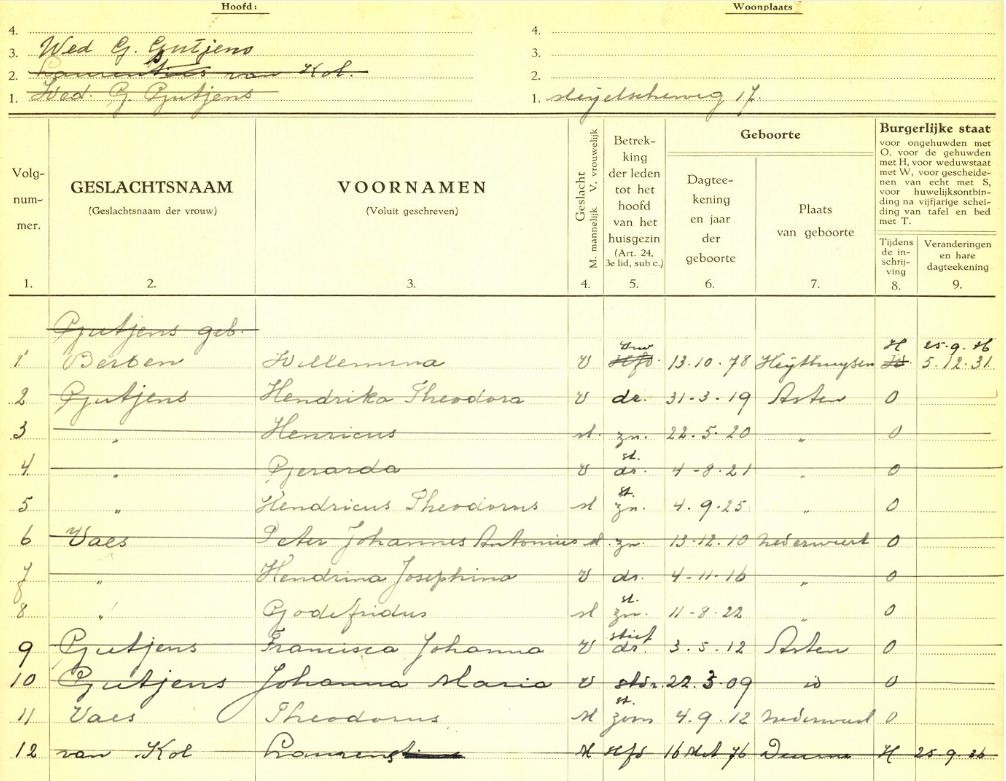 Hoofd:
Woonplaats
4.
3. Wed G. Gutjens
2. van Kol.
1. Wed. G. Gutjens
4.
3.
2.
1. 17.
Volg-
num-
mer.
1.
GESLACHTSNAAM
(Geslachtsnaam der vrouw)
2.
VOORNAMEN
(Voluit geschreven)
3.
Geslacht
M. mannelijk V. vrouwelijk
4.
Betrek-
king
der leden
tot het
hoofd
van het
huisgezin
(Art. 24,
3e lid, sub c.)
5.
Geboorte
Dagtee-
kening
en jaar
der
geboorte
6.
Plaats
van geboorte
7.
Burgerlijke staat
voor ongehuwden met
O, voor de gehuwden
met H, voor weduwstaat
met W, voor gescheide-
nen van echt met S,
voor huwelijksontbin-
ding na vijfjarige schei-
ding van tafel en bed
met T.
Tijdens
de in-
schrij-
ving
8.
Veranderingen
en hare
dagteekening
9.
Gutjens geb.
vrw H 25.9.36
1 Berben Willemina V Hfd 13.10.78 Heijthuysen W 5.12.31
2 Gutjens Hendrika Theodora V dr. 31-3-19 Asten O
3 " Henricus M. zn. 22.5.20 " O
st.
4 " Gerarda V dr. 4-8-21 O
st.
5 " Hendricus Theodorus M zn. 4.9.25 " O
6 Vaes Peter Johannes Antonius M. zn. 13.12.10 Nederweert O
7 " Hendrina Josephina V dr. 4-11-16 " O
st.
8 " Godefridus M zn. 11-8-22 " O
stief
9 Gutjens Francisca Johanna V dr. 3.5.12 Asten O
10 Gutjens Johanna Maria V stdr. 22.3.09 id O
st.
11 Vaes Theodorus M zoon 4.9.12 Nederweert O
12 van Kol Laurens M Hfd 16 Mrt 76 Deurne H 25.9.36